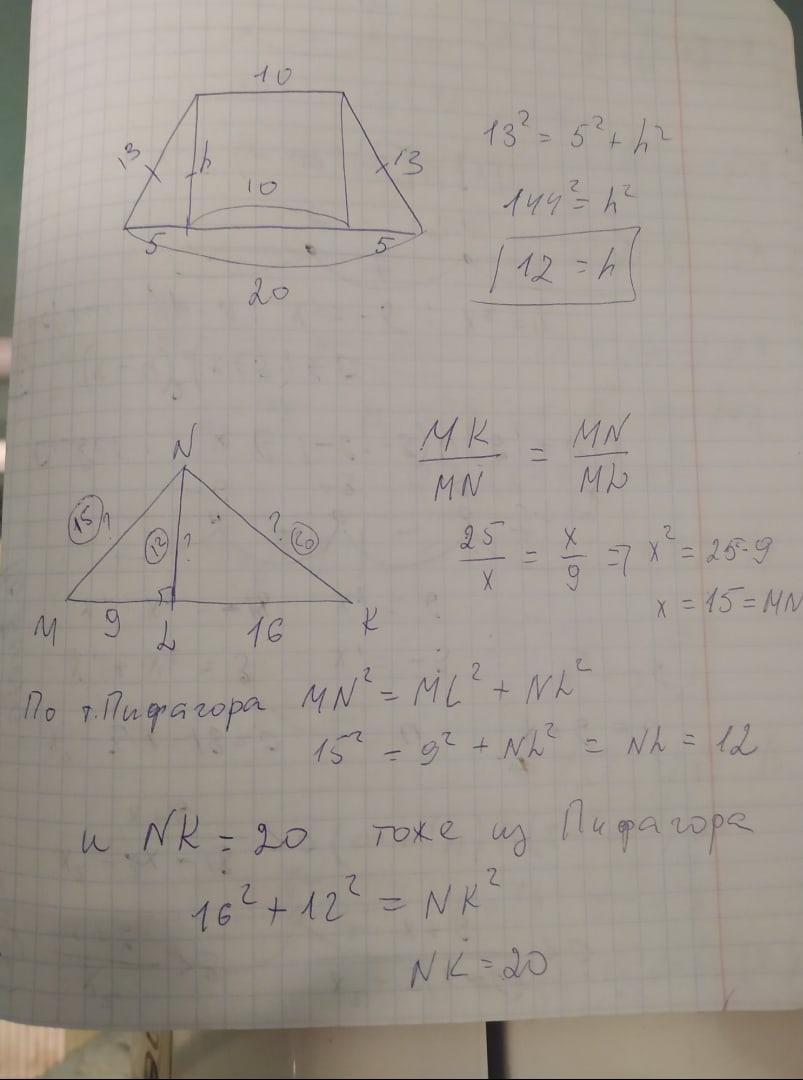 10
13
h
13
10
5
5
20
13² = 5² + h²
144² = h²
12 = h
N
15 ?
12 ?
? 20
M 9 L 16 K
MK/MN = MN/ML
25/x = x/9 => x² = 25·9
x = 15 = MN
По т.Пифагора MN² = ML² + NL²
15² = 9² + NL² = NL = 12
и NK = 20 тоже из Пифагора
16² + 12² = NK²
NK = 20